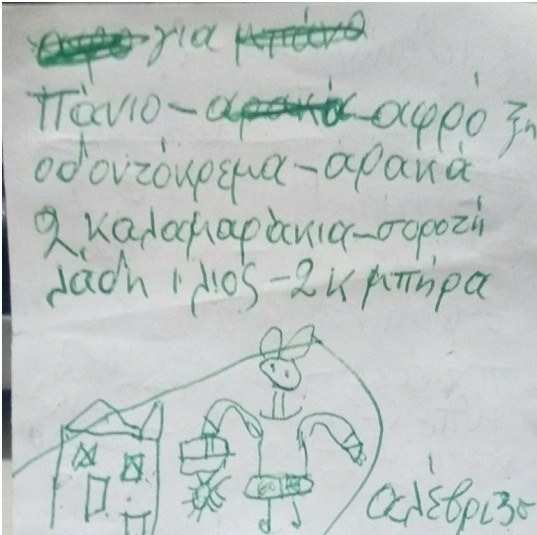 για
πάνιο - αφρό ξη
οδοντόκρεμα - αρακά
2 καλαμαράκια - σοροτή
λάδη ιλιος - 2 κ μπήρα
αλέβρι